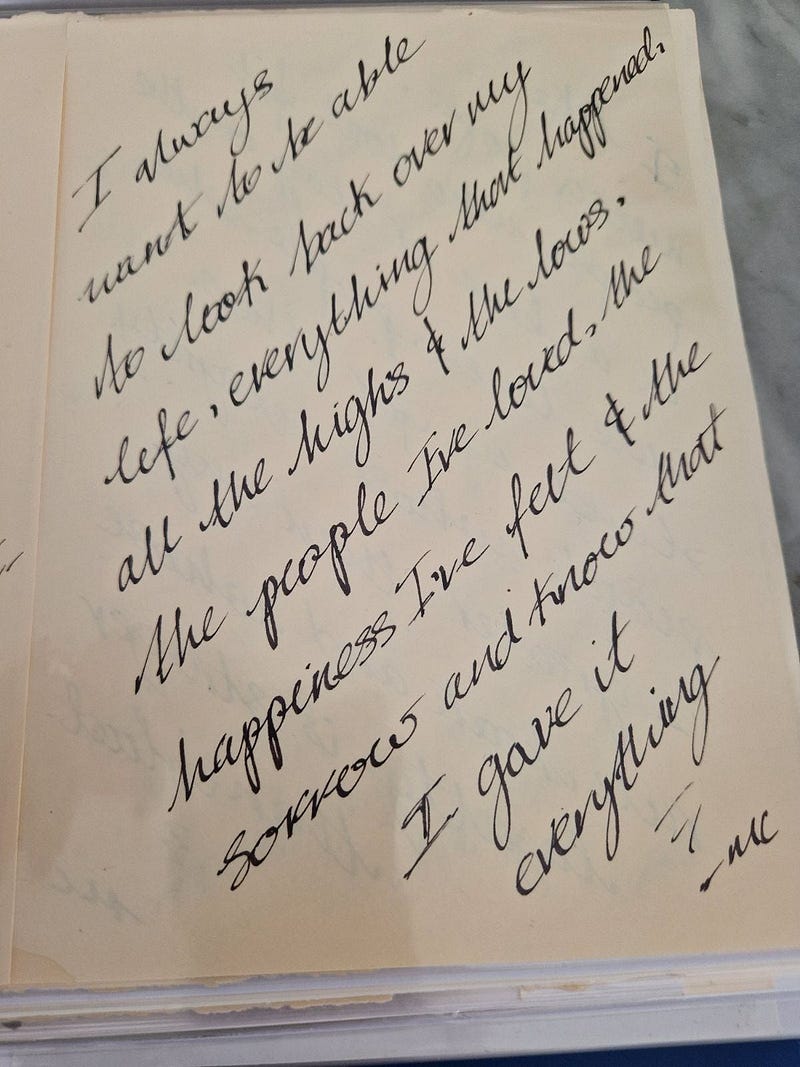 I always
want to be able
to look back over my
life, everything that happened,
all the highs & the lows.
the people I've loved, the
happiness I've felt & the
sorrow and know that
I gave it
everything